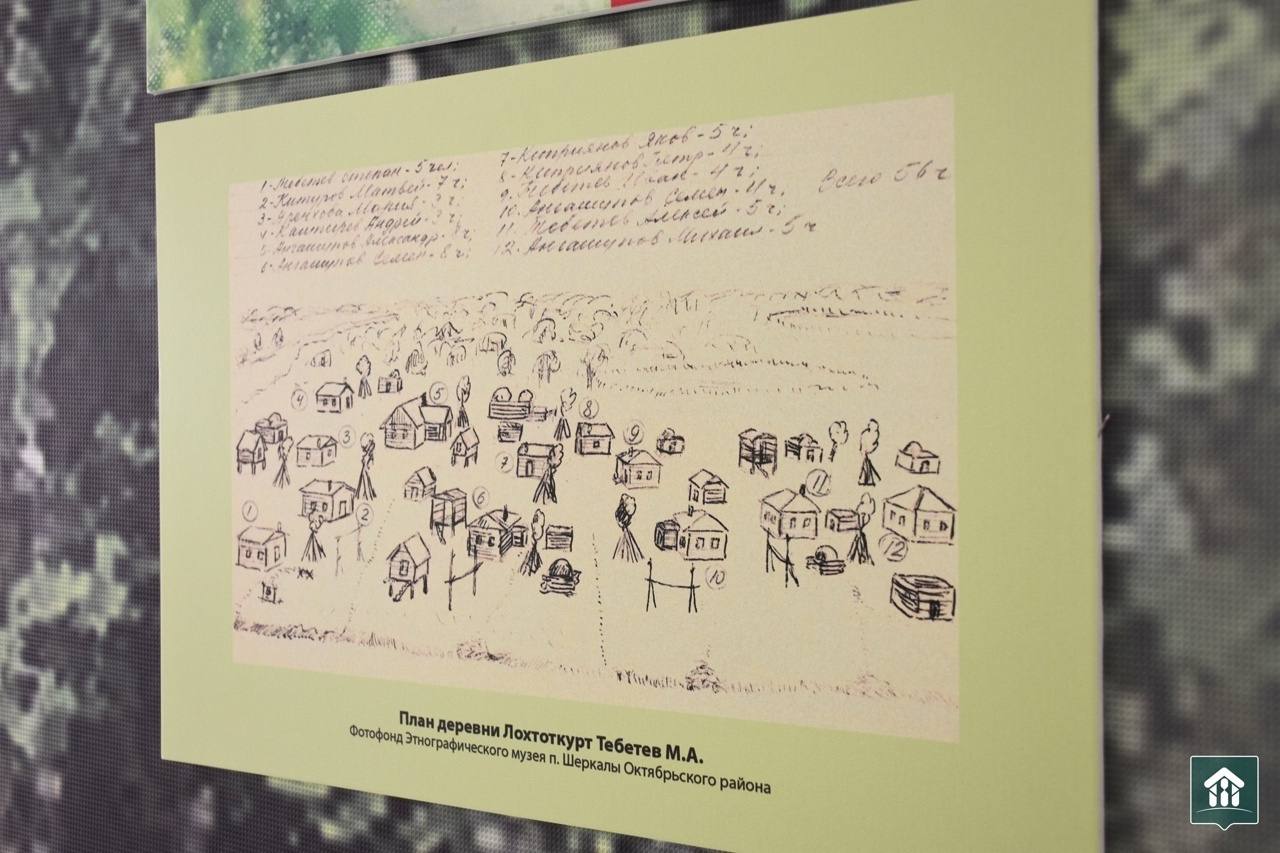 1-Тебетев Степан-5 чел;
2-Китуров Матвей-7 ч;
3-Аренхова Мария-3 ч;
4-Калтычев Андрей-3 ч;
5-Ангашупов Александр- ч;
6-Ангашупов Семен-8 ч;
7-Киприянов Яков-5 ч;
8-Киприянов Петр-4 ч;
9-Тебетев Иван-4 ч;
10-Ангашупов Семен-4 ч;
11-Тебетев Алексей-5 ч;
12-Ангашупов Михаил-5 ч
Всего 56 ч
4
5
8
3
9
7
6
11
1
2
12
10
План деревни Лохтоткурт Тебетев М.А.
Фотофонд Этнографического музея п. Шеркалы Октябрьского района